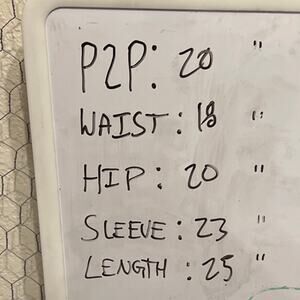 P2P: 20 "
WAIST: 18 "
HIP: 20 "
SLEEVE: 23 "
LENGTH: 25 "